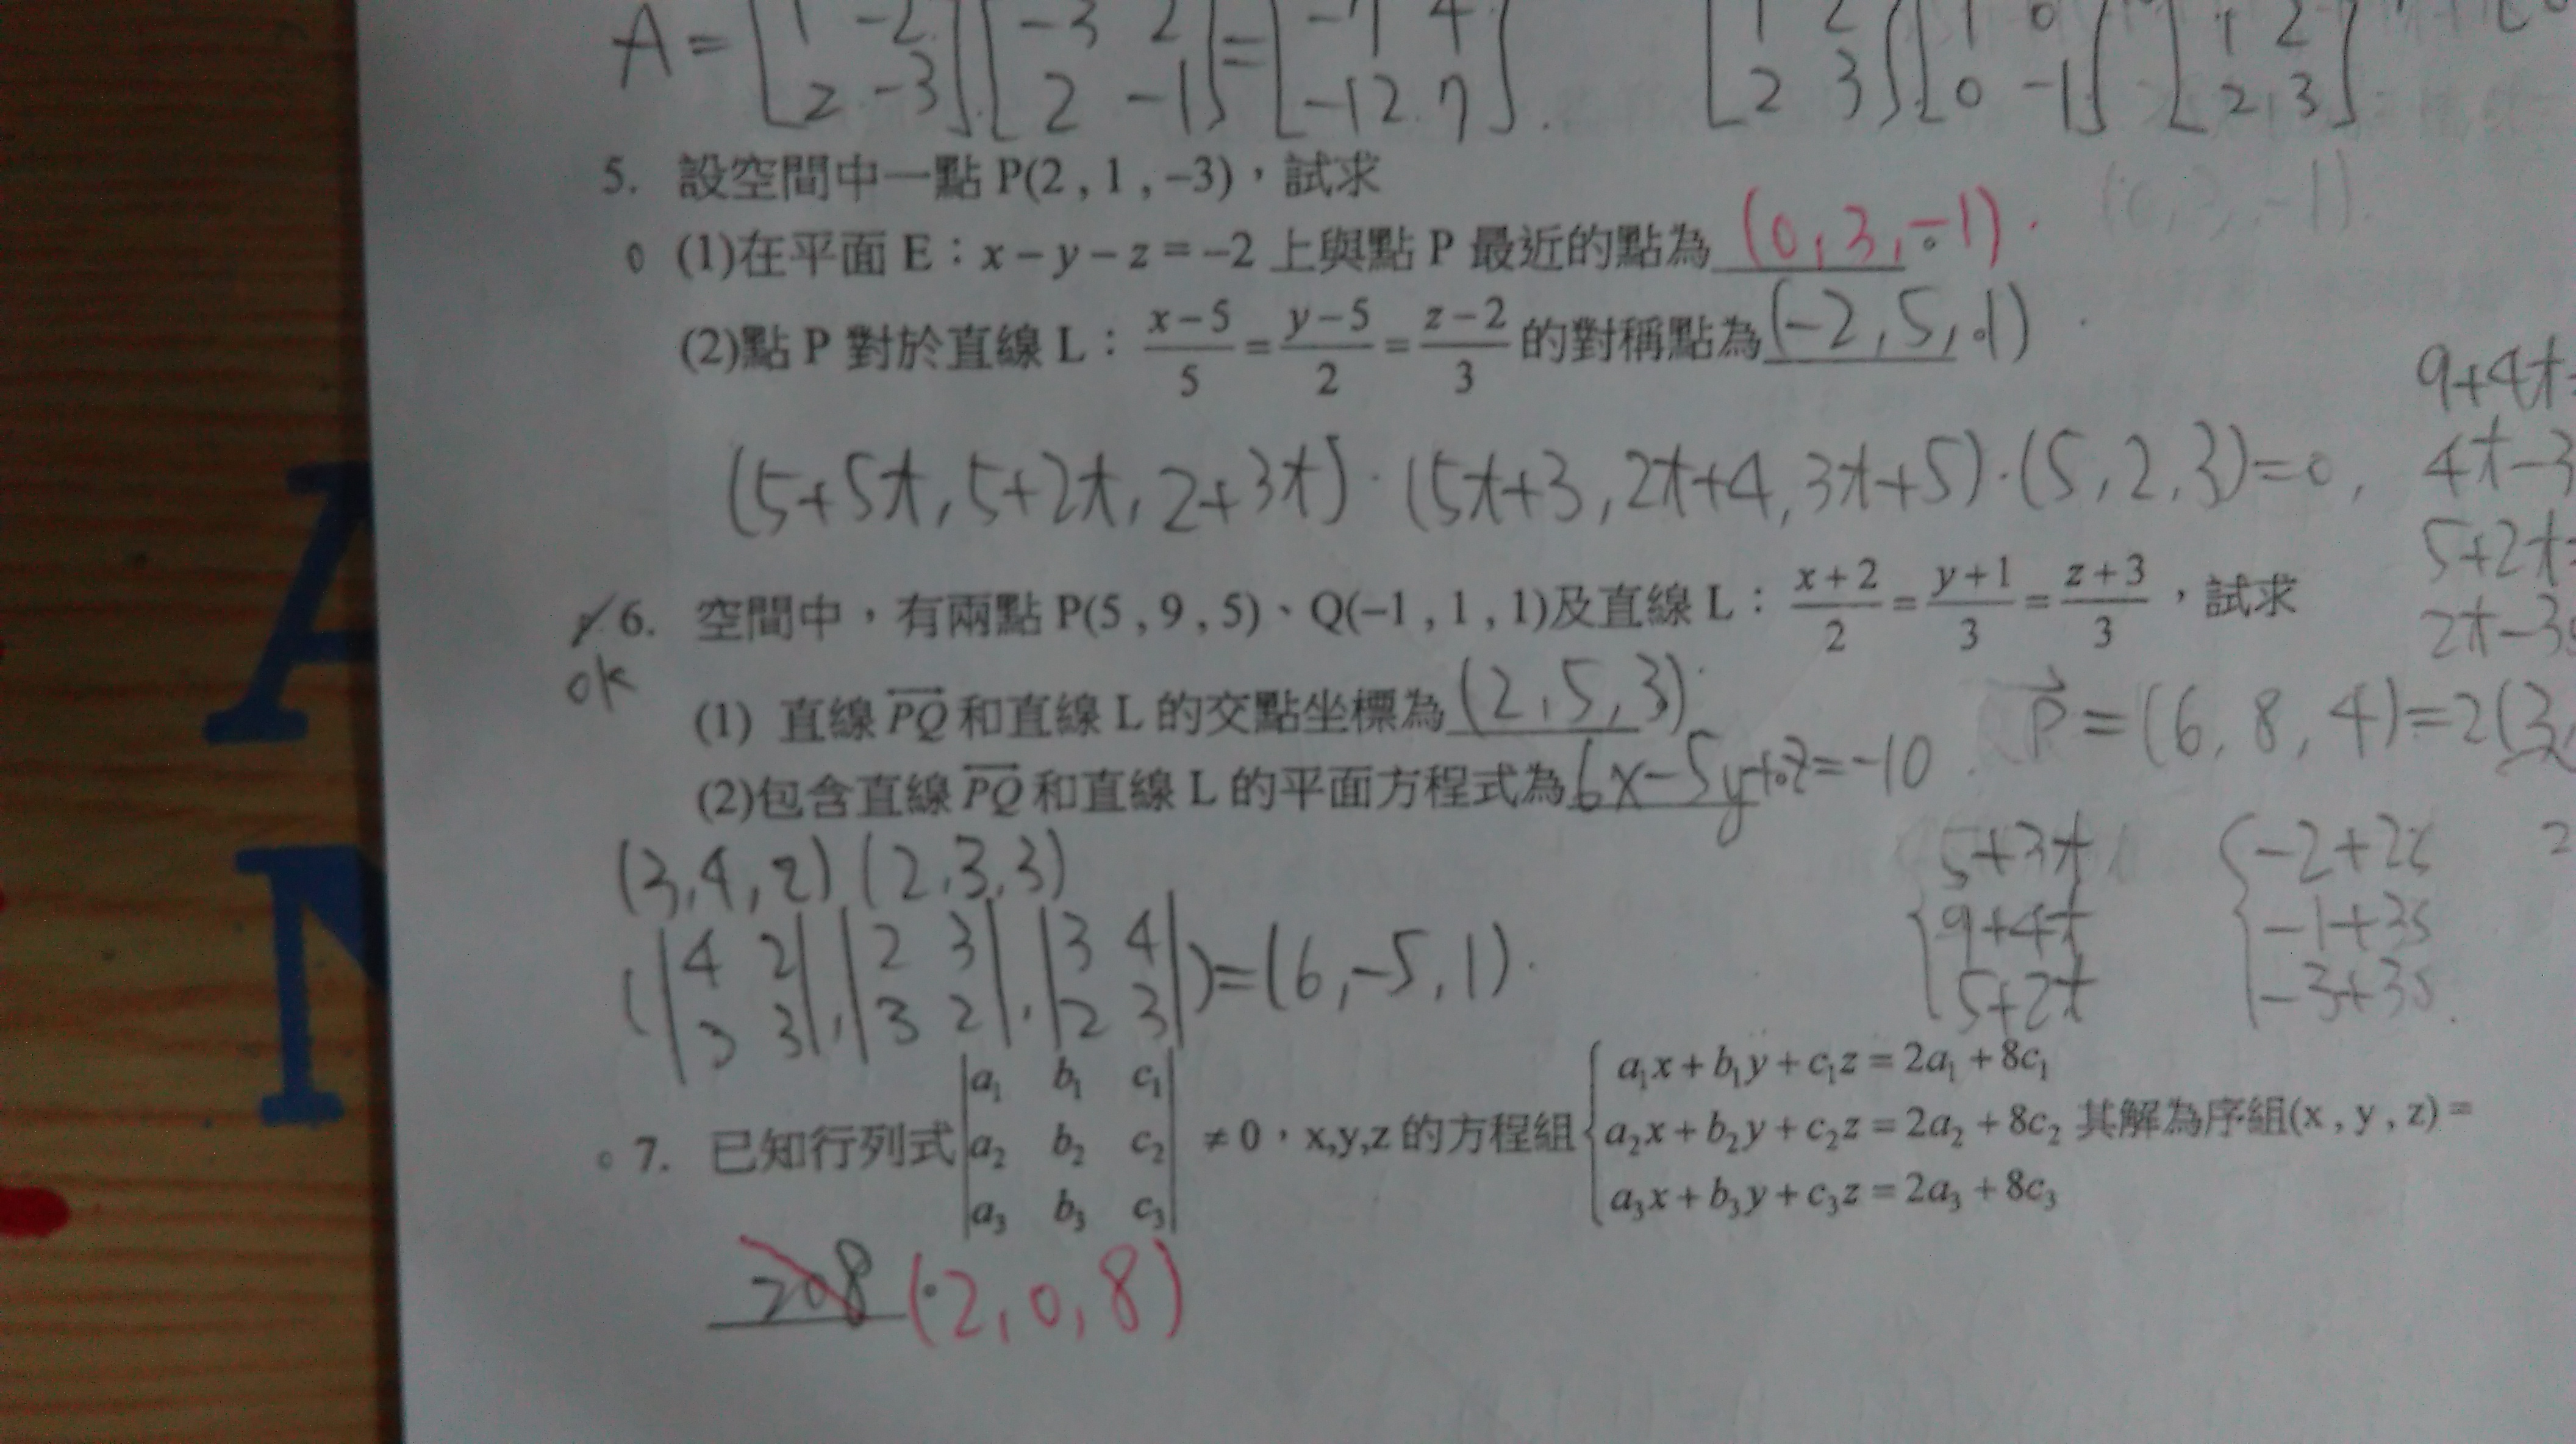 A = [1 -2 2 -3] [-3 2 2 -1] = [-7 4 -12 7].
[1 2 2 3] [1 0 0 -1] [1 2 2 3]
5. 設空間中一點 P(2 , 1 , −3)，試求
(1)在平面 E：x − y − z = −2 上與點 P 最近的點為 (0, 3, -1).
(2)點 P 對於直線 L：(x−5)/5 = (y−5)/2 = (z−2)/3 的對稱點為 (-2, 5, 1)
(5+5t, 5+2t, 2+3t) · (5t+3, 2t+4, 3t+5)·(5, 2, 3)=0,
9+4t
4t-3
5+2t
2t-3
6. 空間中，有兩點 P(5 , 9 , 5)、Q(−1 , 1 , 1)及直線 L：(x+2)/2 = (y+1)/3 = (z+3)/3，試求
ok
(1) 直線 PQ 和直線 L 的交點坐標為 (2, 5, 3)
(2)包含直線 PQ 和直線 L 的平面方程式為 6x-5y+z=-10
P = (6, 8, 4)=2(3,
(3, 4, 2) (2, 3, 3)
5+3t
9+4t
5+2t
-2+2s
-1+3s
-3+3s
(|4 2 3 3|, |2 3 3 2|, |3 4 2 3|)=(6, -5, 1).
7. 已知行列式 |a₁ b₁ c₁ a₂ b₂ c₂ a₃ b₃ c₃| ≠ 0，x,y,z 的方程組 { a₁x + b₁y + c₁z = 2a₁ + 8c₁
a₂x + b₂y + c₂z = 2a₂ + 8c₂ 其解為序組(x , y , z) =
a₃x + b₃y + c₃z = 2a₃ + 8c₃
208 (2, 0, 8)